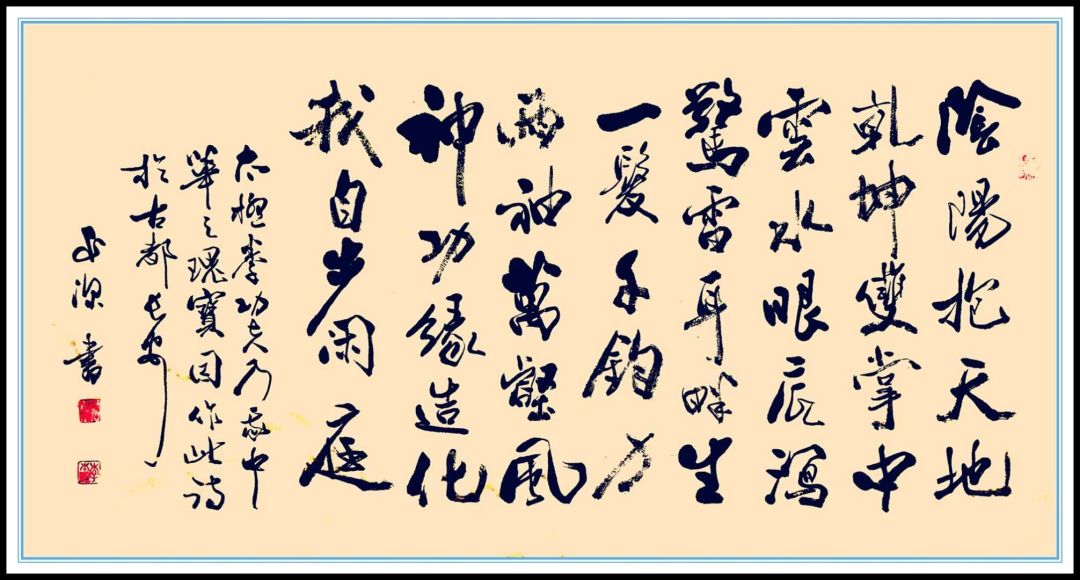 陰陽抱天地
乾坤雙掌中
雲水眼底瀉
驚雷耳畔生
一髮千鈞力
兩袖萬壑風
神功緣造化
我自步閑庭
太極拳功夫乃我中
華之瑰寶因作此詩
於古都長安
書